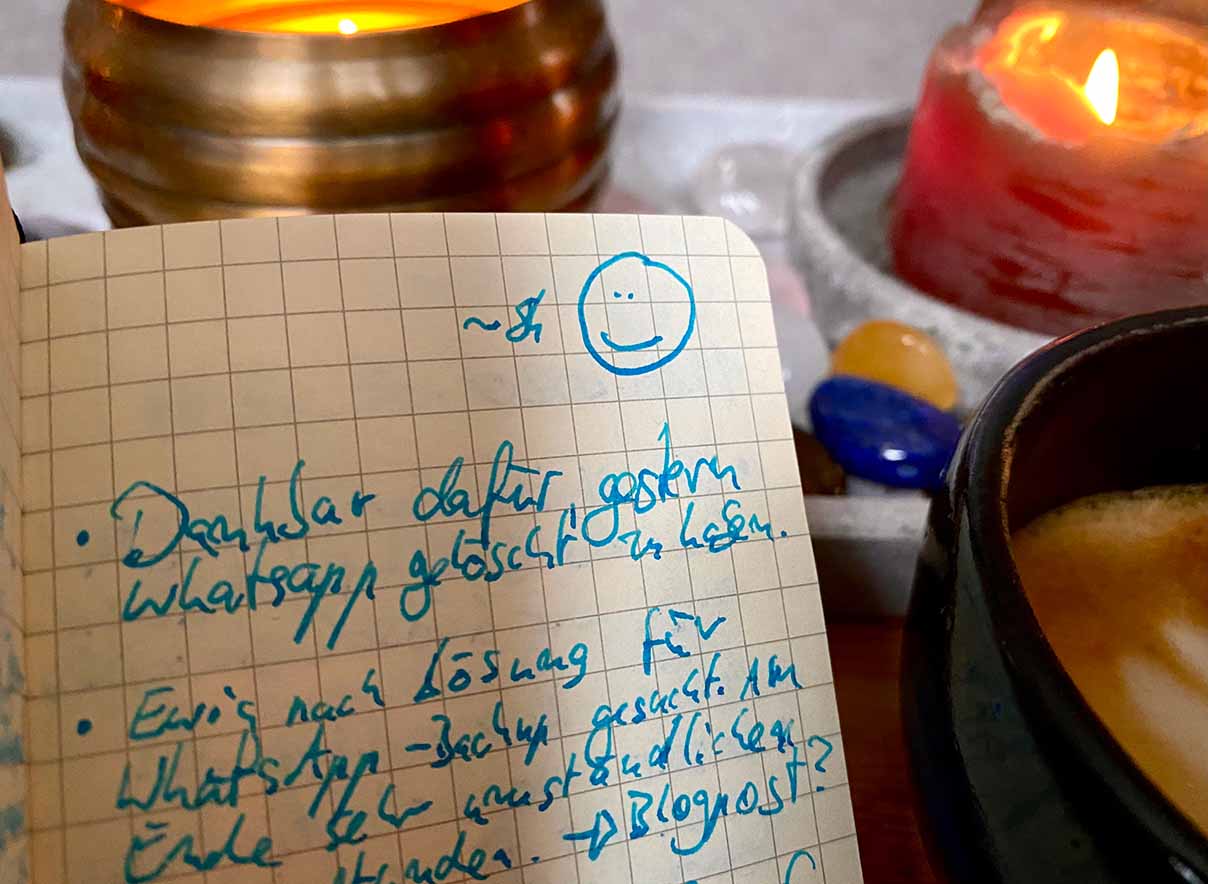 • Dankbar dafür, gestern
whatsapp gelöscht zu haben.
• Ewig nach Lösung für
WhatsApp-Backup gesucht. Am
Ende sehr umständlichen
→ Blogpost?